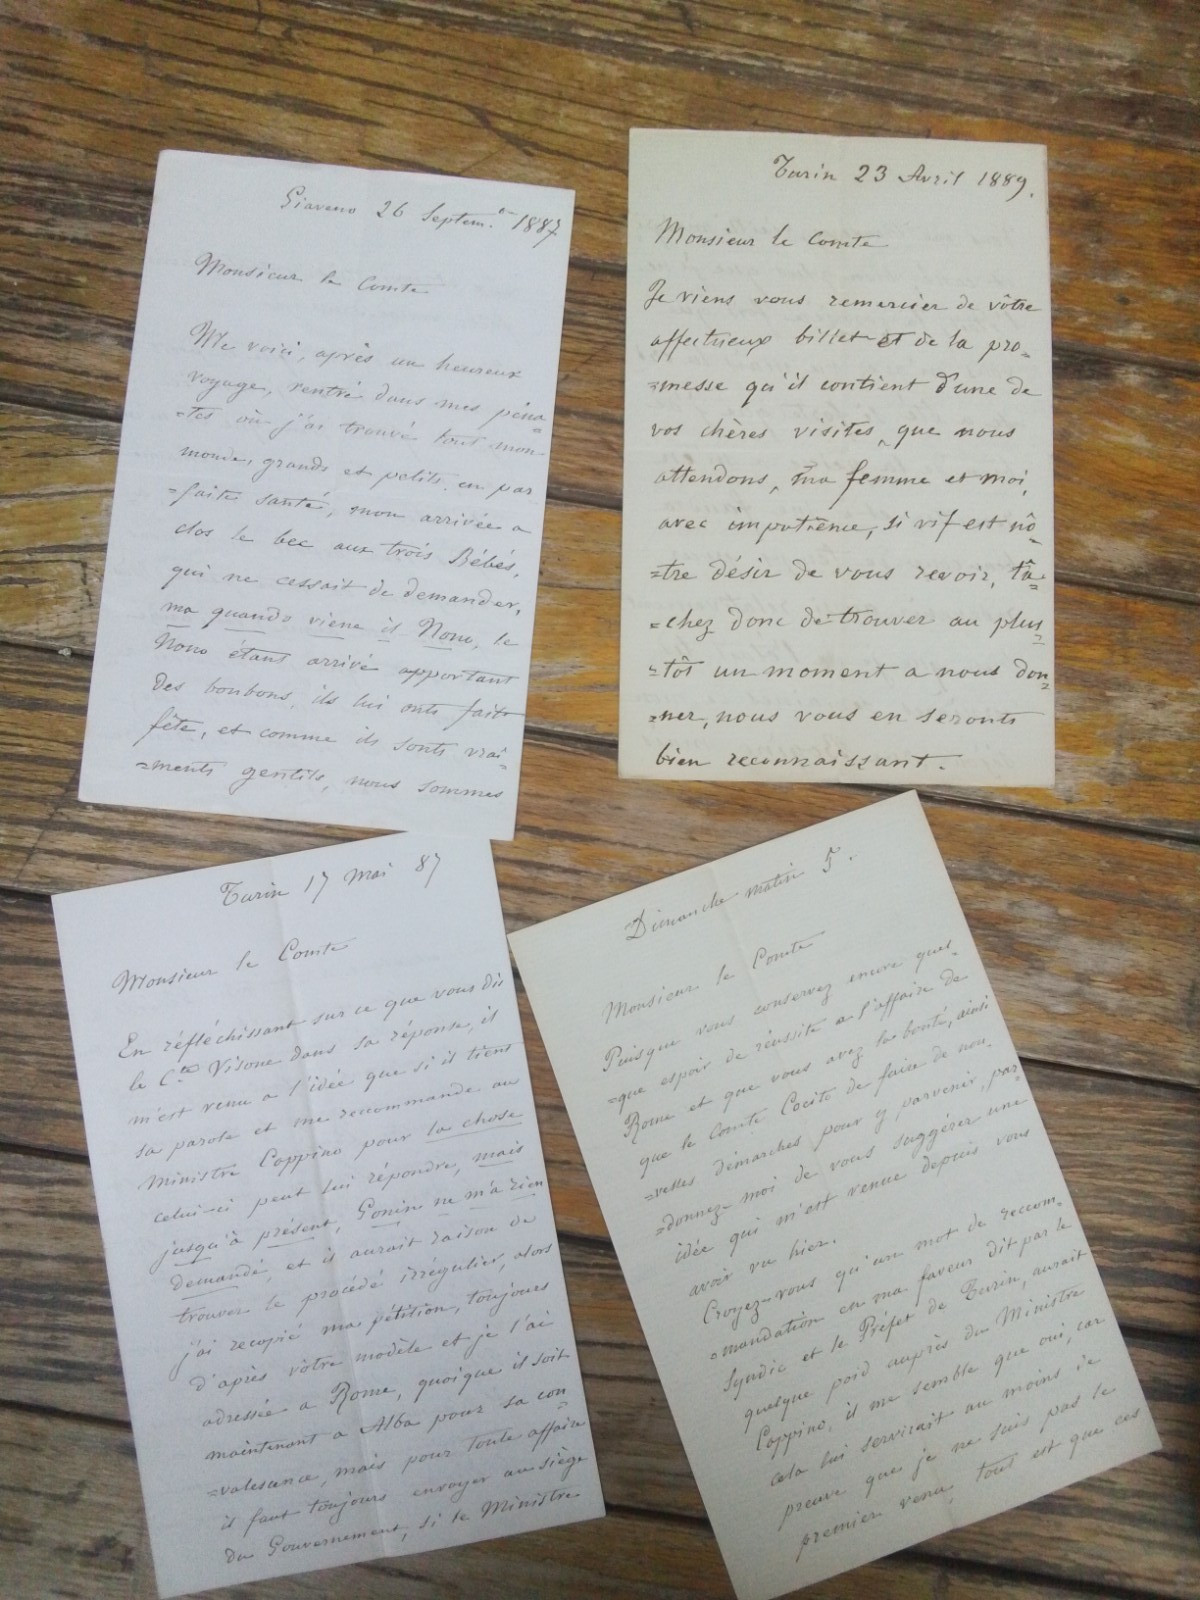 Giaveno 26 Septem.e 1887
Monsieur le Comte
Me voici, après un heureux
voyage, rentré dans mes péna=
=tes où j'ai trouvé tout mon
monde, grands et petits, en par
=faite santé, mon arrivée a
clos le bec aux trois Bébés,
qui ne cessait de demander,
ma quando viene il Nono, le
Nono étant arrivé apportant
des bonbons, ils lui onts faits
fête, et comme ils sonts vrai=
=ments gentils, nous sommes
Turin 23 Avril 1889.
Monsieur le Comte
Je viens vous remercier de vôtre
affectueux billet et de la pro=
=messe qu'il contient d'une de
vos chères visites, que nous
attendons, ma femme et moi,
avec impatience, si vif est nô
=tre désir de vous revoir, tâ=
=chez donc de trouver au plus=
=tôt un moment a nous don=
=ner, nous vous en seronts
bien reconnaissant.
Turin 17 Mai 87
Monsieur le Comte
En réfléchissant sur ce que vous dit
le Cte Visone dans sa réponse, il
m'est venu a l'idée que si il tient
sa parole et me recommande au
Ministre Coppino pour la chose
celui-ci peut lui répondre, mais
jusqu'à présent, Gonin ne m'a rien
demandé, et il aurait raison de
trouver le procédé irrégulier, alors
j'ai recopié ma pétition, toujours
d'après vôtre modèle et je l'ai
adressée a Rome, quoique il soit
maintenant a Alba pour sa con=
=valesance, mais pour toute affaire
il faut toujours envoyer au siège
du Gouvernement, si le Ministre
Dimanche matin 5.
Monsieur le Comte
Puisque vous conservez encore quel=
=que espoir de réussite a l'affaire de
Rome et que vous avez la bonté, ainsi
que le Comte Cocito de faire de nou=
=velles démarches pour y parvenir, par=
=donnez-moi de vous suggérer une
idée qui m'est venue depuis vous
avoir vu hier.
Croyez-vous qu'un mot de recom=
=mandation en ma faveur dit par le
Syndic et le Préfet de Turin, aurait
quelque poid auprès du Ministre
Coppino, il me semble que oui, car
cela lui servirait au moins de
preuve que je ne suis pas le
premier venu, tout est que ces